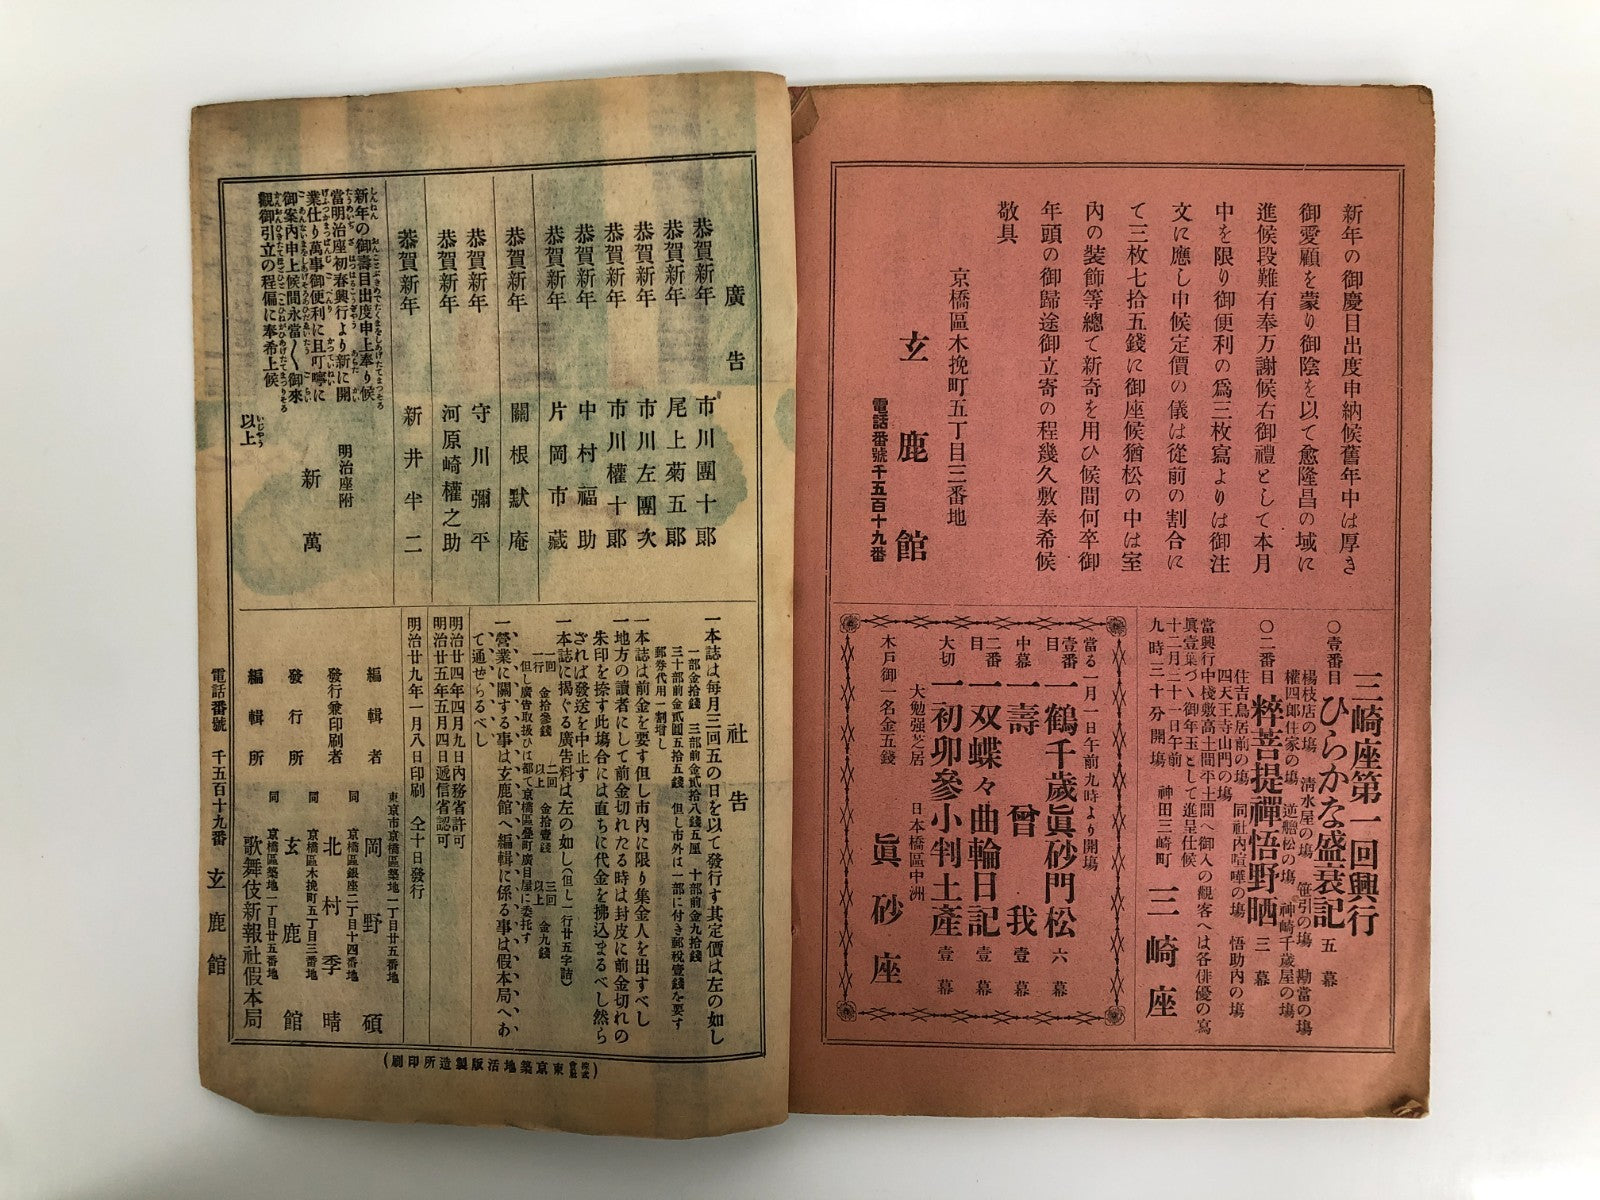 新年の御慶目出度申納候舊年中は厚き
御愛顧を蒙り御陰を以て愈隆昌の域に
進候段難有奉万謝候右御禮として本月
中を限り御便利の爲三枚寫よりは御注
文に應し申候定價の儀は從前の割合に
て三枚七拾五錢に御座候猶松の中は室
內の裝飾等總て新奇を用ひ候間何卒御
年頭の御歸途御立寄の程幾久敷奉希候
敬具
京橋區木挽町五丁目三番地
玄鹿館
電話番號千五百十九番
三崎座第一回興行
○壹番目 ひらかな盛衰記 五幕
楊枝店の塲 淸水屋の塲 笹引の塲 勘當の塲
權四郎住家の塲 逆艪松の塲 神崎千歲屋の塲
○二番目 粹菩提禪悟野晒 三幕
住吉鳥居前の塲 同社內喧嘩の塲 悟助內の塲
四天王寺山門の塲
當興行中棧敷高土間平土間へ御入の觀客へは各俳優の寫
眞壹葉づゝ御年玉として進呈仕候
十二月三十一日午前
九時三十分開塲
神田三崎町 三崎座
當る一月一日午前九時より開塲
壹番目 一鶴千歲眞砂門松 六幕
中幕 一壽曾我 壹幕
二番目 一双蝶々曲輪日記 壹幕
大切 一初卯參小判土產 壹幕
大勉强芝居 日本橋區中洲
木戶御一名金五錢 眞砂座
廣告
恭賀新年 市川團十郎
恭賀新年 尾上菊五郎
恭賀新年 市川左團次
恭賀新年 市川權十郎
恭賀新年 中村福助
恭賀新年 片岡市藏
恭賀新年 關根默庵
恭賀新年 守川彌平
恭賀新年 河原崎權之助
恭賀新年 新井半二
新年の御壽目出度申上奉り候
當明治座初春興行より新に開
業仕り萬事御便利に且叮嚀に
御案內申上候間永當〱御來
觀御引立の程偏に奉希上候
以上
明治座附
新萬
社告
一本誌は每月三回五の日を以て發行す其定價は左の如し
一部金拾錢 三部前金貳拾八錢五厘 十部前金九拾錢
三十部前金貳圓五拾五錢 但し市外は一部に付き郵稅壹錢を要す
郵券代用一割增し
一本誌は前金を要す但し市內に限り集金人を出すべし
一地方の讀者にして前金切れたる時は封皮に前金切れの
朱印を捺す此塲合には直ちに代金を拂込まるべし然ら
ざれば發送を中止す
一本誌に揭ぐる廣吿料は左の如し(但し一行廿五字詰)
一回 金拾參錢 二回 金拾壹錢 三回 金九錢
一行 以上 以上
但し廣吿取扱ひは都て京橋區疊町廣目屋に委托す
一營業に關する事は玄鹿館へ編輯に係る事は假本局へあ
て通ぜらるべし
明治廿四年四月九日內務省許可
明治廿五年五月四日遞信省認可
明治廿九年一月八日印刷 仝十日發行
東京市京橋區築地一丁目廿五番地
編輯者 岡野碩
同 京橋區銀座二丁目十四番地
發行兼印刷者 北村季晴
同 京橋區木挽町五丁目三番地
發行所 玄鹿館
同 京橋區築地一丁目廿五番地
編輯所 歌舞伎新報社假本局
電話番號 千五百十九番 玄鹿館
(株式會社東京築地活版製造所印刷)